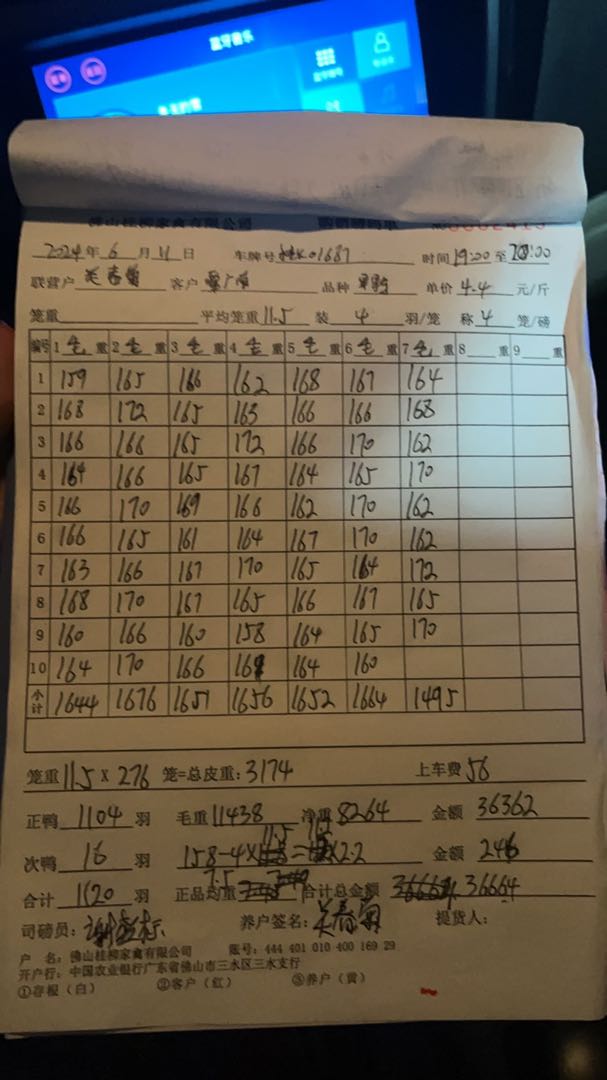 蓝牙音乐
佛山桂柳家禽有限公司
2024年6月11日 车牌号 01687 时间19:00至20:00
联营户 客户 品种 单价4.4元/斤
笼重 平均笼重11.5 装4羽/笼 称4笼/磅
编号 1毛重 2毛重 3毛重 4毛重 5毛重 6毛重 7毛重 8 重 9 重
1 159 165 166 162 168 167 164
2 168 172 165 163 166 166 168
3 166 166 165 172 166 170 162
4 164 166 165 167 164 165 170
5 166 170 169 166 162 170 162
6 166 165 161 164 167 170 162
7 163 166 167 170 165 164 172
8 168 170 167 165 166 167 165
9 160 166 160 158 164 165 170
10 164 170 166 169 164 160
小计 1644 1676 1651 1656 1652 1664 1495
笼重11.5×276笼=总皮重:3174 上车费56
正鸭1104羽 毛重11438 净重8264 金额36362
11.5 112
次鸭16羽 158-4× = ×2.2 金额246
7.5
合计1120羽 正品均重 合计总金额 36664
司磅员: 养户签名: 提货人:
户 名:佛山桂柳家禽有限公司 账号:444 401 010 400 169 29
开户行:中国农业银行广东省佛山市三水区三水支行
①存根(白) ②客户(红) ③养户(黄)